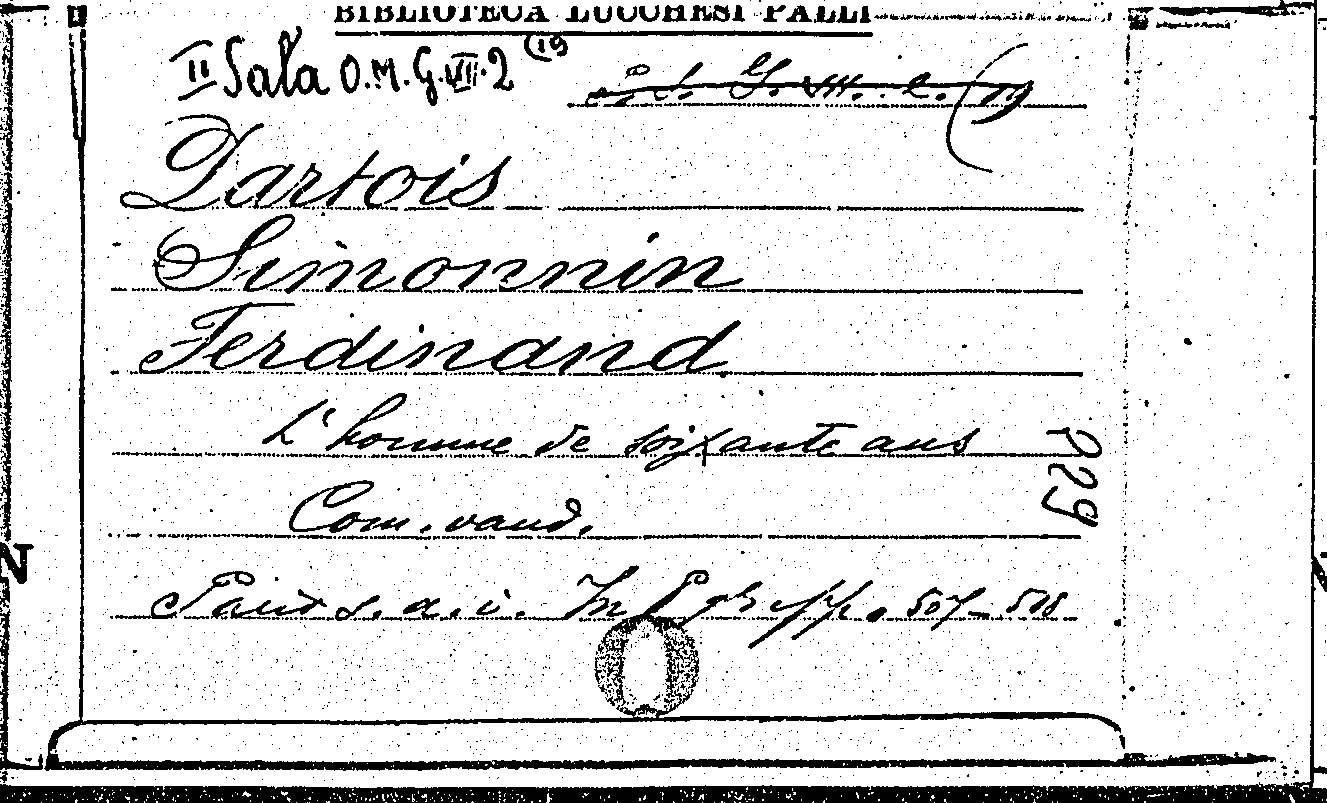 BIBLIOTECA LUCCHESI PALLI
II Sala O.M.G.VII.2 (19
Dartois
Simonnin
Ferdinand
L'homme de soixante ans
Com. vaud.
229
Paris s.a.i. In 8° gr. pp. 507-518
N